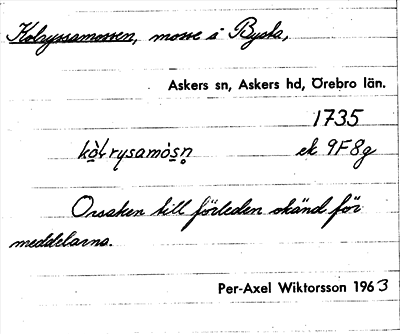 Kolryssamossen, mosse i Bysta,
Askers sn, Askers hd, Örebro län.
1735
kò̱lrysamò̱sn̥ ek 9F8g
Orsaken till förleden okänd för
meddelarna.
Per-Axel Wiktorsson 1963